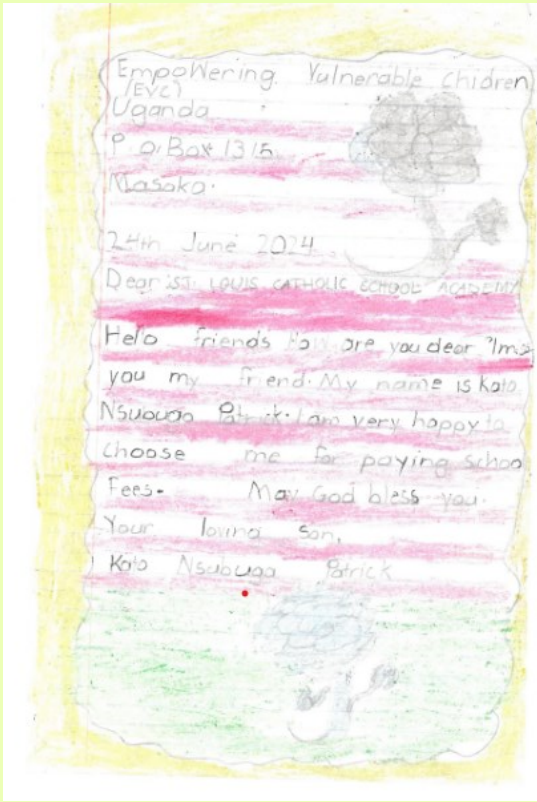 Empowering Vulnerable Chidren
(EVC)
Uganda
P.o.Box 1315
Masaka.
24th June 2024
Dear ST. LOUIS CATHOLIC SCHOOL ACADEMY
Hello friends How are you dear "Ims
you my friend. My name is Kato
Nsubuga Patrick. I am very happy to
choose me for paying schoo
Fees. May God bless you.
Your loving son,
Kato Nsubuga Patrick